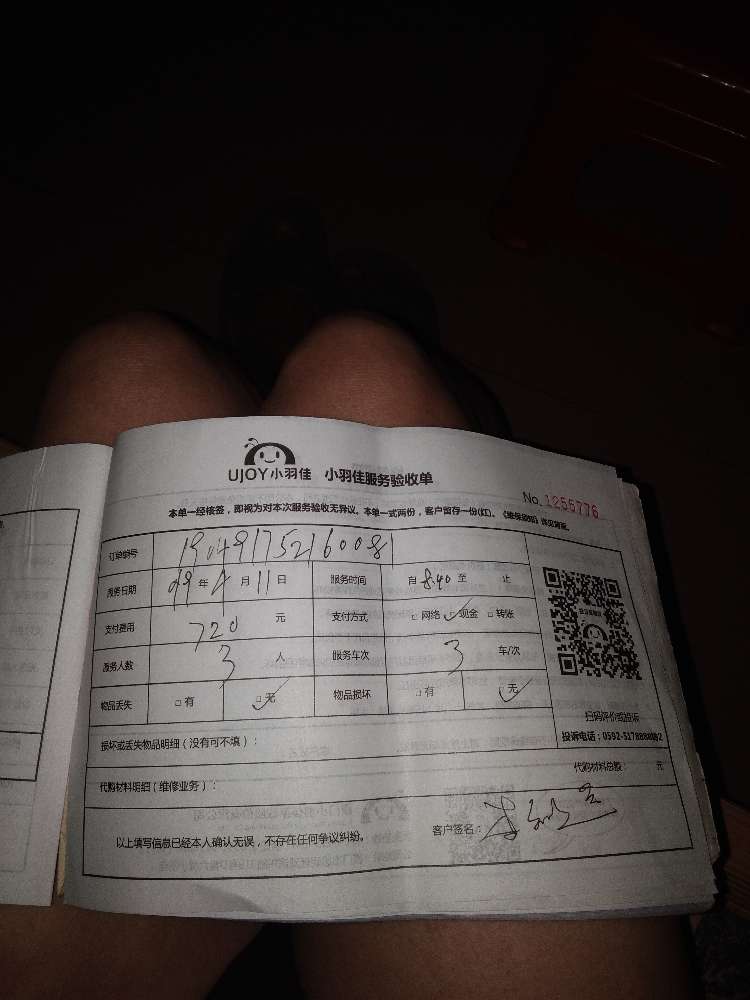 UJOY小羽佳 小羽佳服务验收单
No. 1255776
本单一经核签，即视为对本次服务验收无异议。本单一式两份，客户留存一份(红)。
订单编号
服务日期 年 4 月 11 日 服务时间 自 8:40 至 止
支付费用 720 元 支付方式 □ 网络 ✓ 现金 □ 转账
服务人数 3 人 服务车次 3 车/次
物品丢失 □ 有 □ 无 ✓ 物品损坏 □ 有 无 ✓
扫码评价或投诉
损坏或丢失物品明细（没有可不填）：
代购材料明细（维修业务）： 代购材料总数： 元
以上填写信息已经本人确认无误，不存在任何争议纠纷。 客户签名：